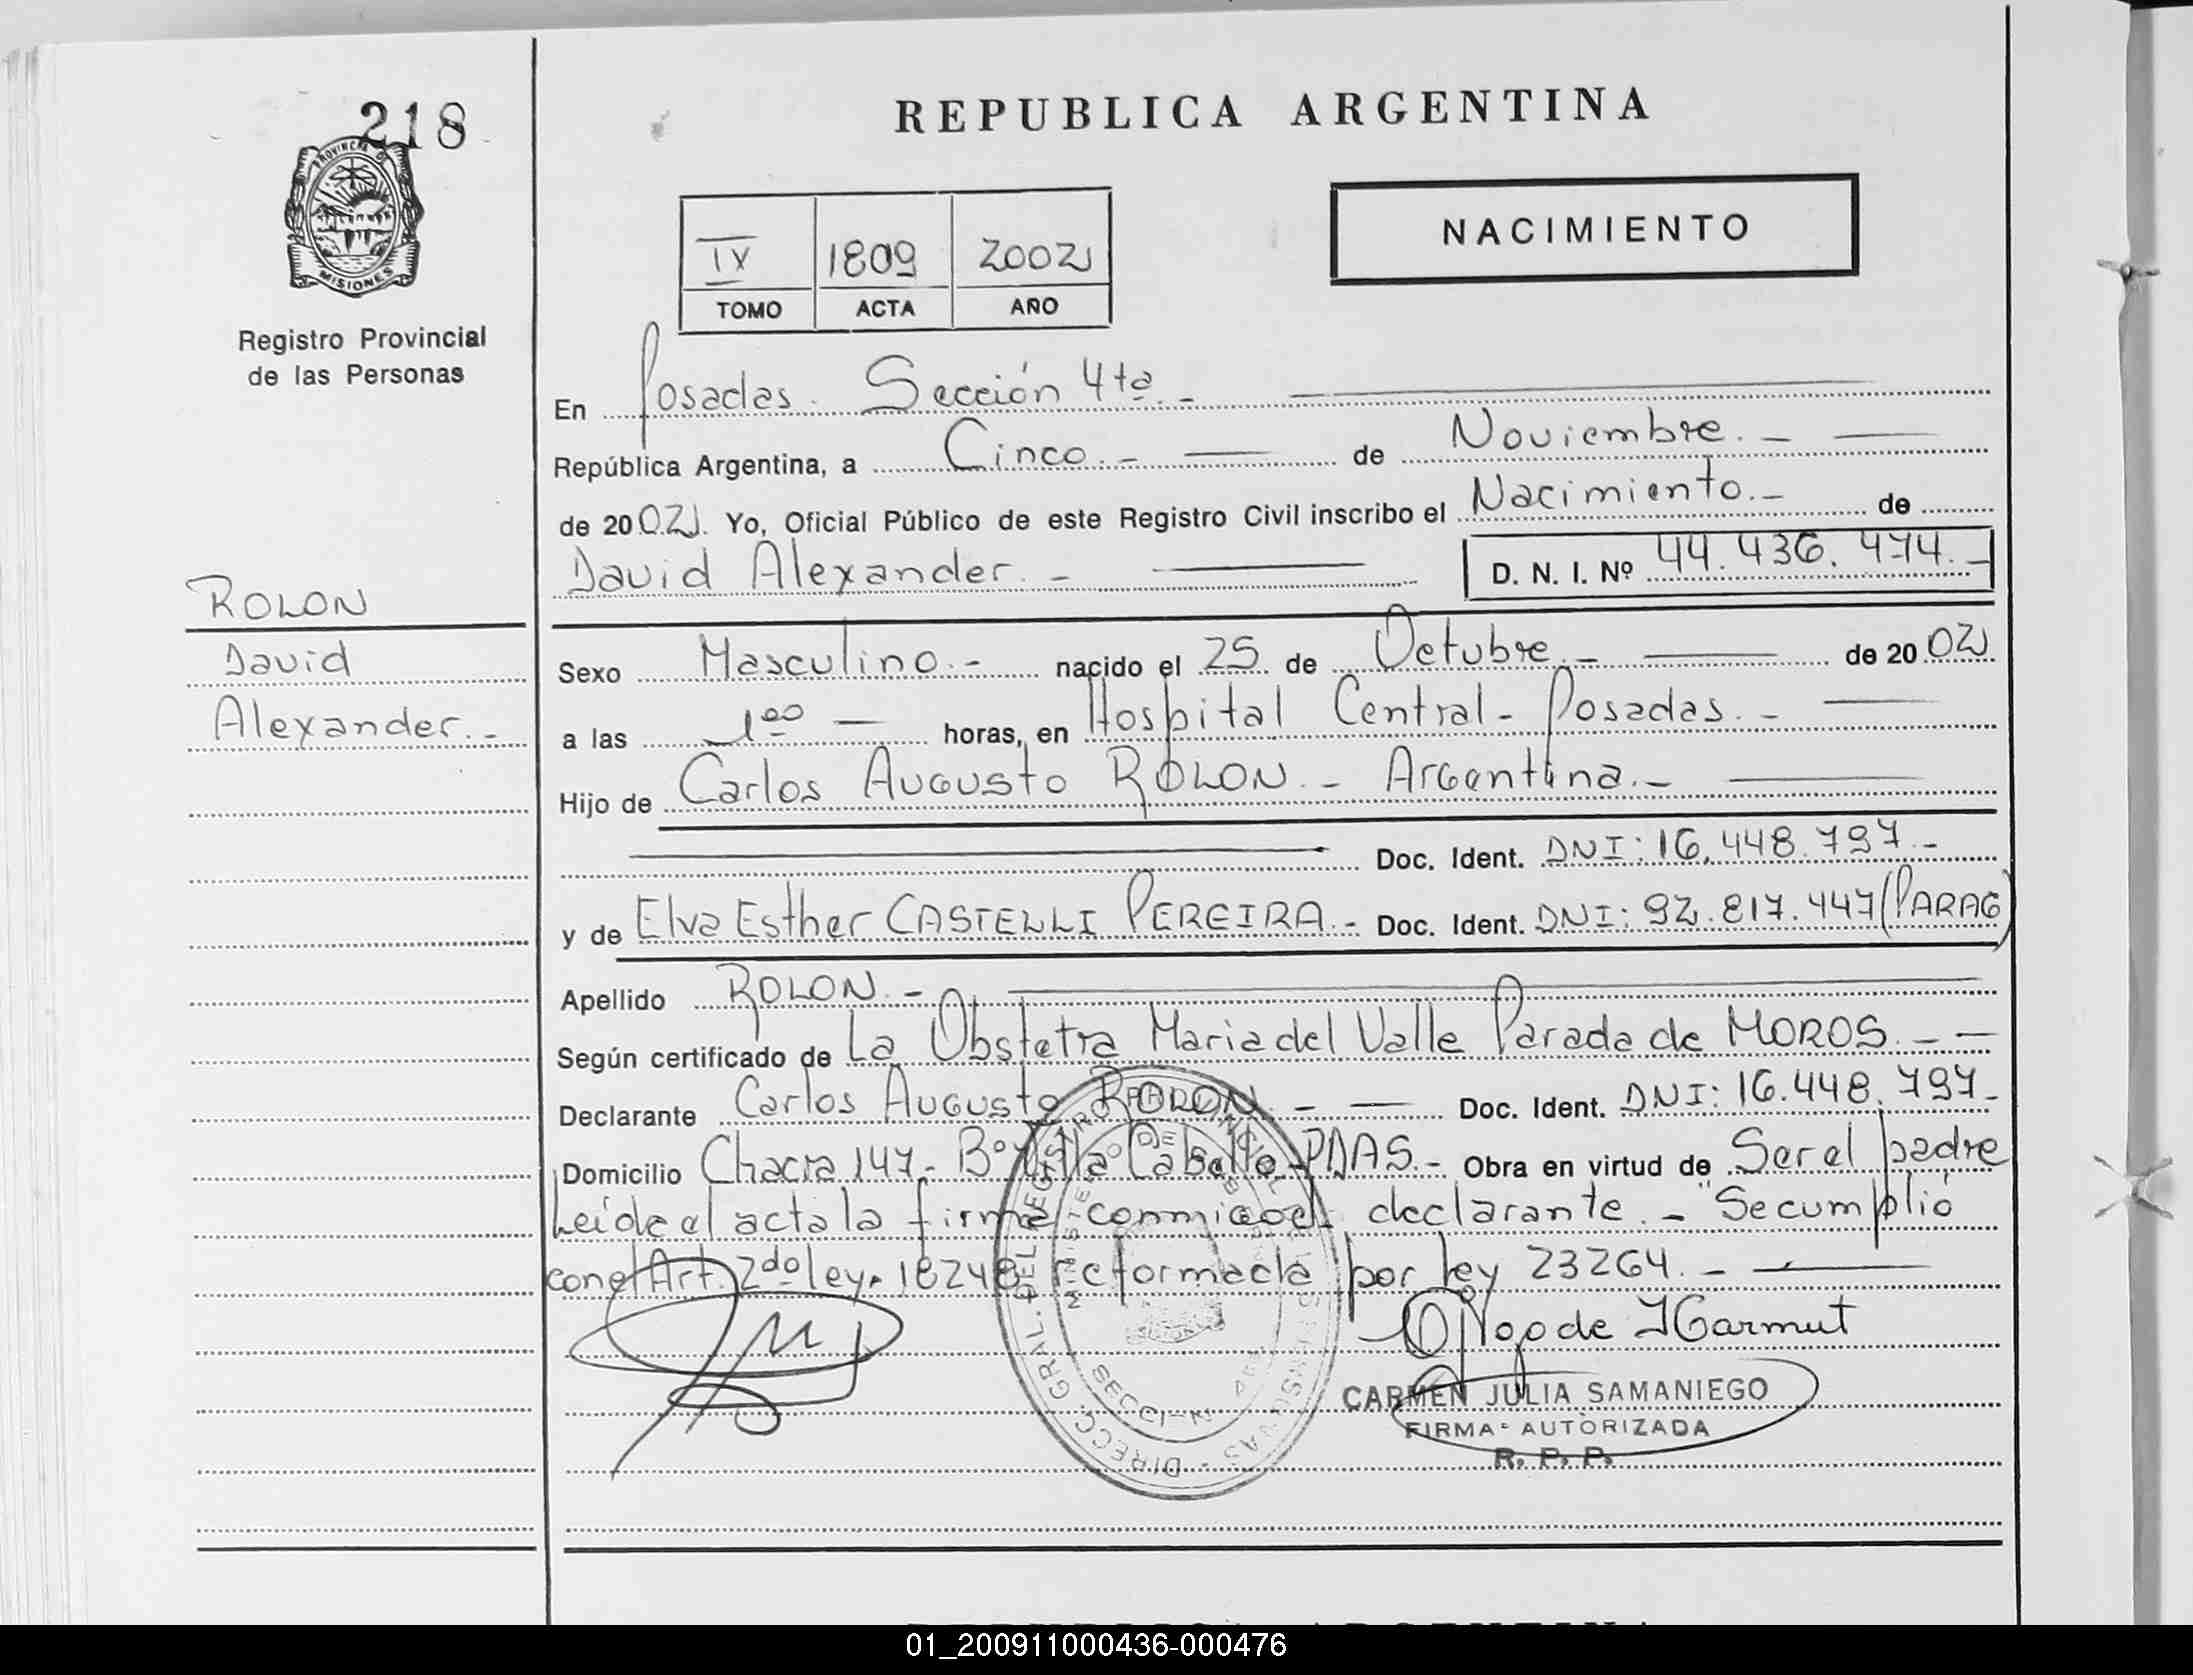 218
PROVINCIA DE
MISIONES
Registro Provincial
de las Personas
REPUBLICA ARGENTINA
NACIMIENTO
IV 1809 2002
TOMO ACTA AÑO
En Posadas. Sección 4ta.-
República Argentina, a Cinco.- de Noviembre.-
de 2002. Yo, Oficial Público de este Registro Civil inscribo el Nacimiento.- de
David Alexander.- D. N. I. Nº 44.436.474.-
ROLON
David
Alexander.-
Sexo Masculino.- nacido el 25 de Octubre.- de 2002
a las 1ºº horas, en Hospital Central- Posadas.-
Hijo de Carlos Augusto ROLON.- Argentina.-
Doc. Ident. DNI: 16.448.797.-
y de Elva Esther CASTELLI PEREIRA.- Doc. Ident. DNI: 92.817.447 (PARAG)
Apellido ROLON.-
Según certificado de La Obstetra Maria del Valle Parada de MOROS.-
Declarante Carlos Augusto ROLON.- Doc. Ident. DNI: 16.448.797-
Domicilio Chacra 147- Bº Villa Cabello-PDAS.- Obra en virtud de Ser el padre
Leída el acta la firma conmigo el declarante.- "Se cumplió
con el Art. 2do ley. 18248 reformada por ley 23264.-
CARMEN JULIA SAMANIEGO
FIRMA AUTORIZADA
R. P. P.
01_200911000436-000476